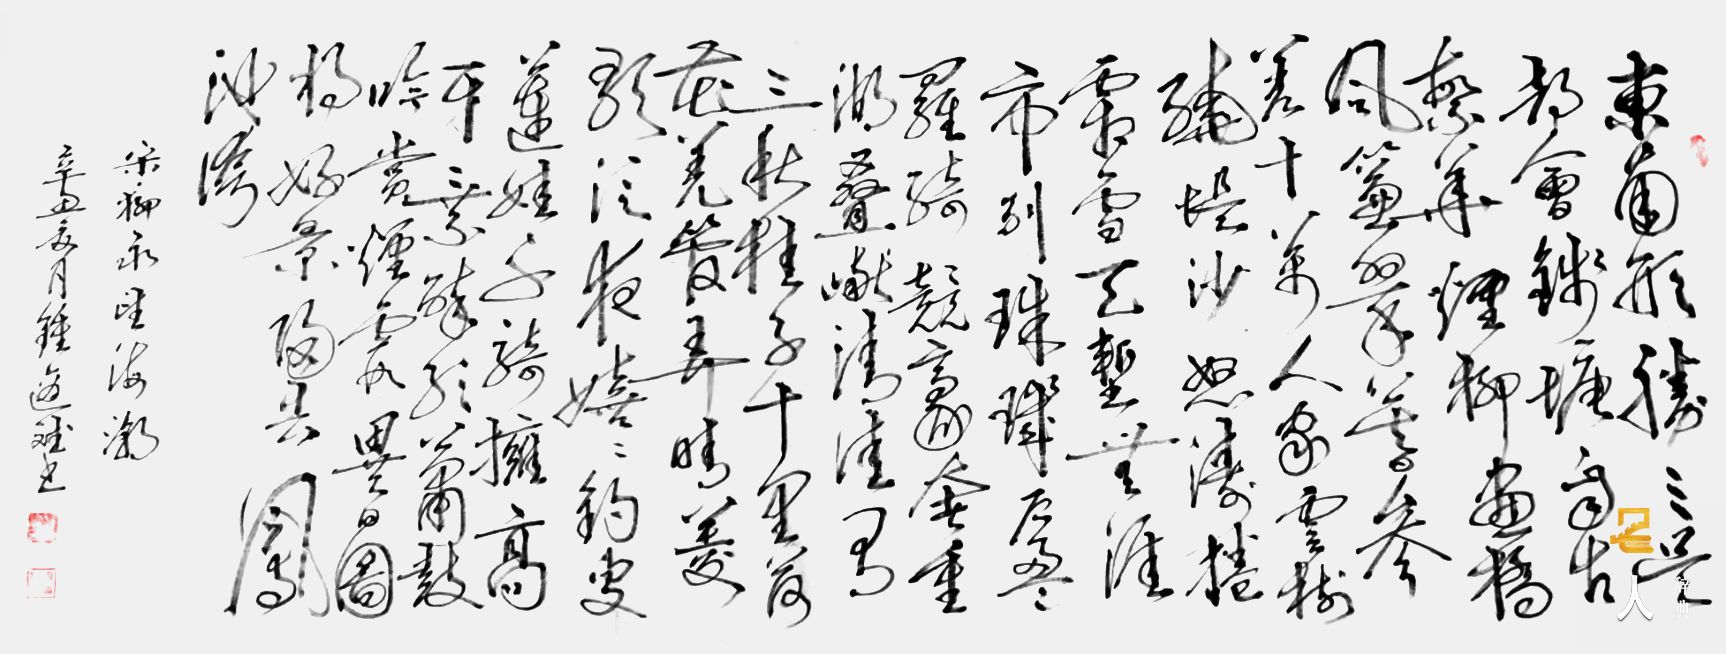 東南形勝三吴
都會錢塘自古
繁華煙柳畫橋
風簾翠幕參
差十萬人家雲樹
繞堤沙怒濤捲
霜雪天塹無涯
市列珠璣戶盈
羅綺競豪奢重
湖疊巘清佳有
三秋桂子十里荷
花羌管弄晴菱
歌泛夜嬉〻釣叟
蓮娃千騎擁高
牙乘醉聽簫鼓
吟賞煙霞異日圖
將好景歸去鳳
池誇
宋柳永望海潮
辛丑夏月鍾逸書
名
人